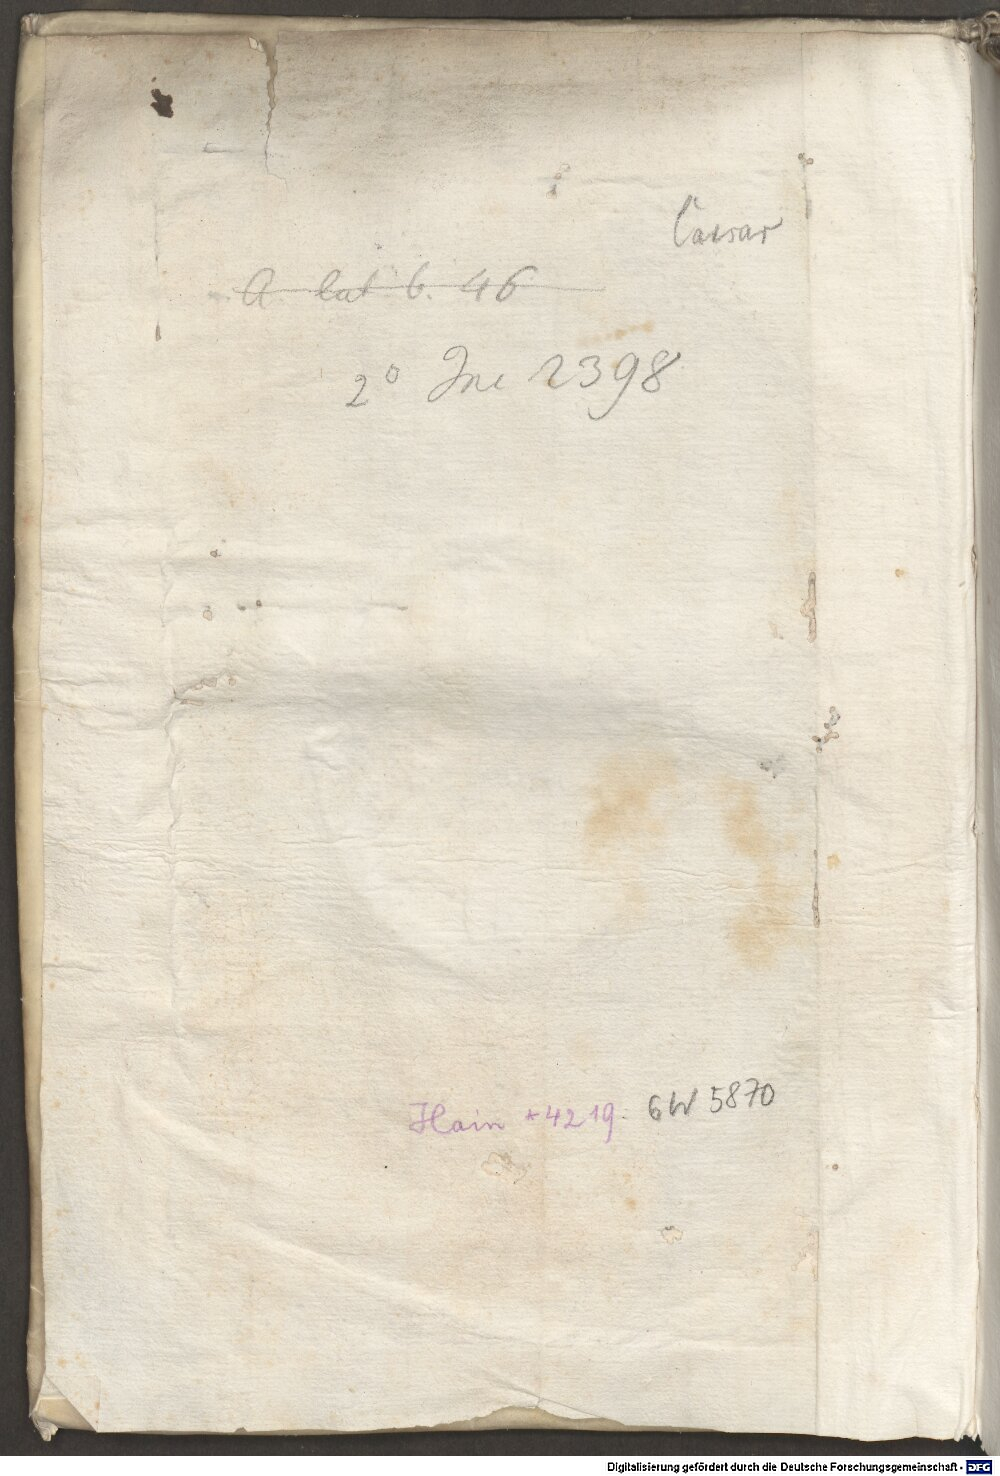 Caesar
A lat b. 46
2° Inc 2398
Hain *4219. GW 5870
Digitalisierung gefördert durch die Deutsche Forschungsgemeinschaft - DFG